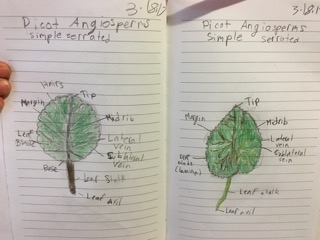 Dicot Angiosperms
simple serrated
Hairs
Tip
Margin
Midrib
Leaf
Blade
Lateral
vein
Sublateral
vein
Base
Leaf Stalk
Leaf axil
Dicot Angiosperms
Simple serrated
Tip
Margin
Midrib
Lateral
vein
Sublateral
vein
Leaf stalk
Leaf axil